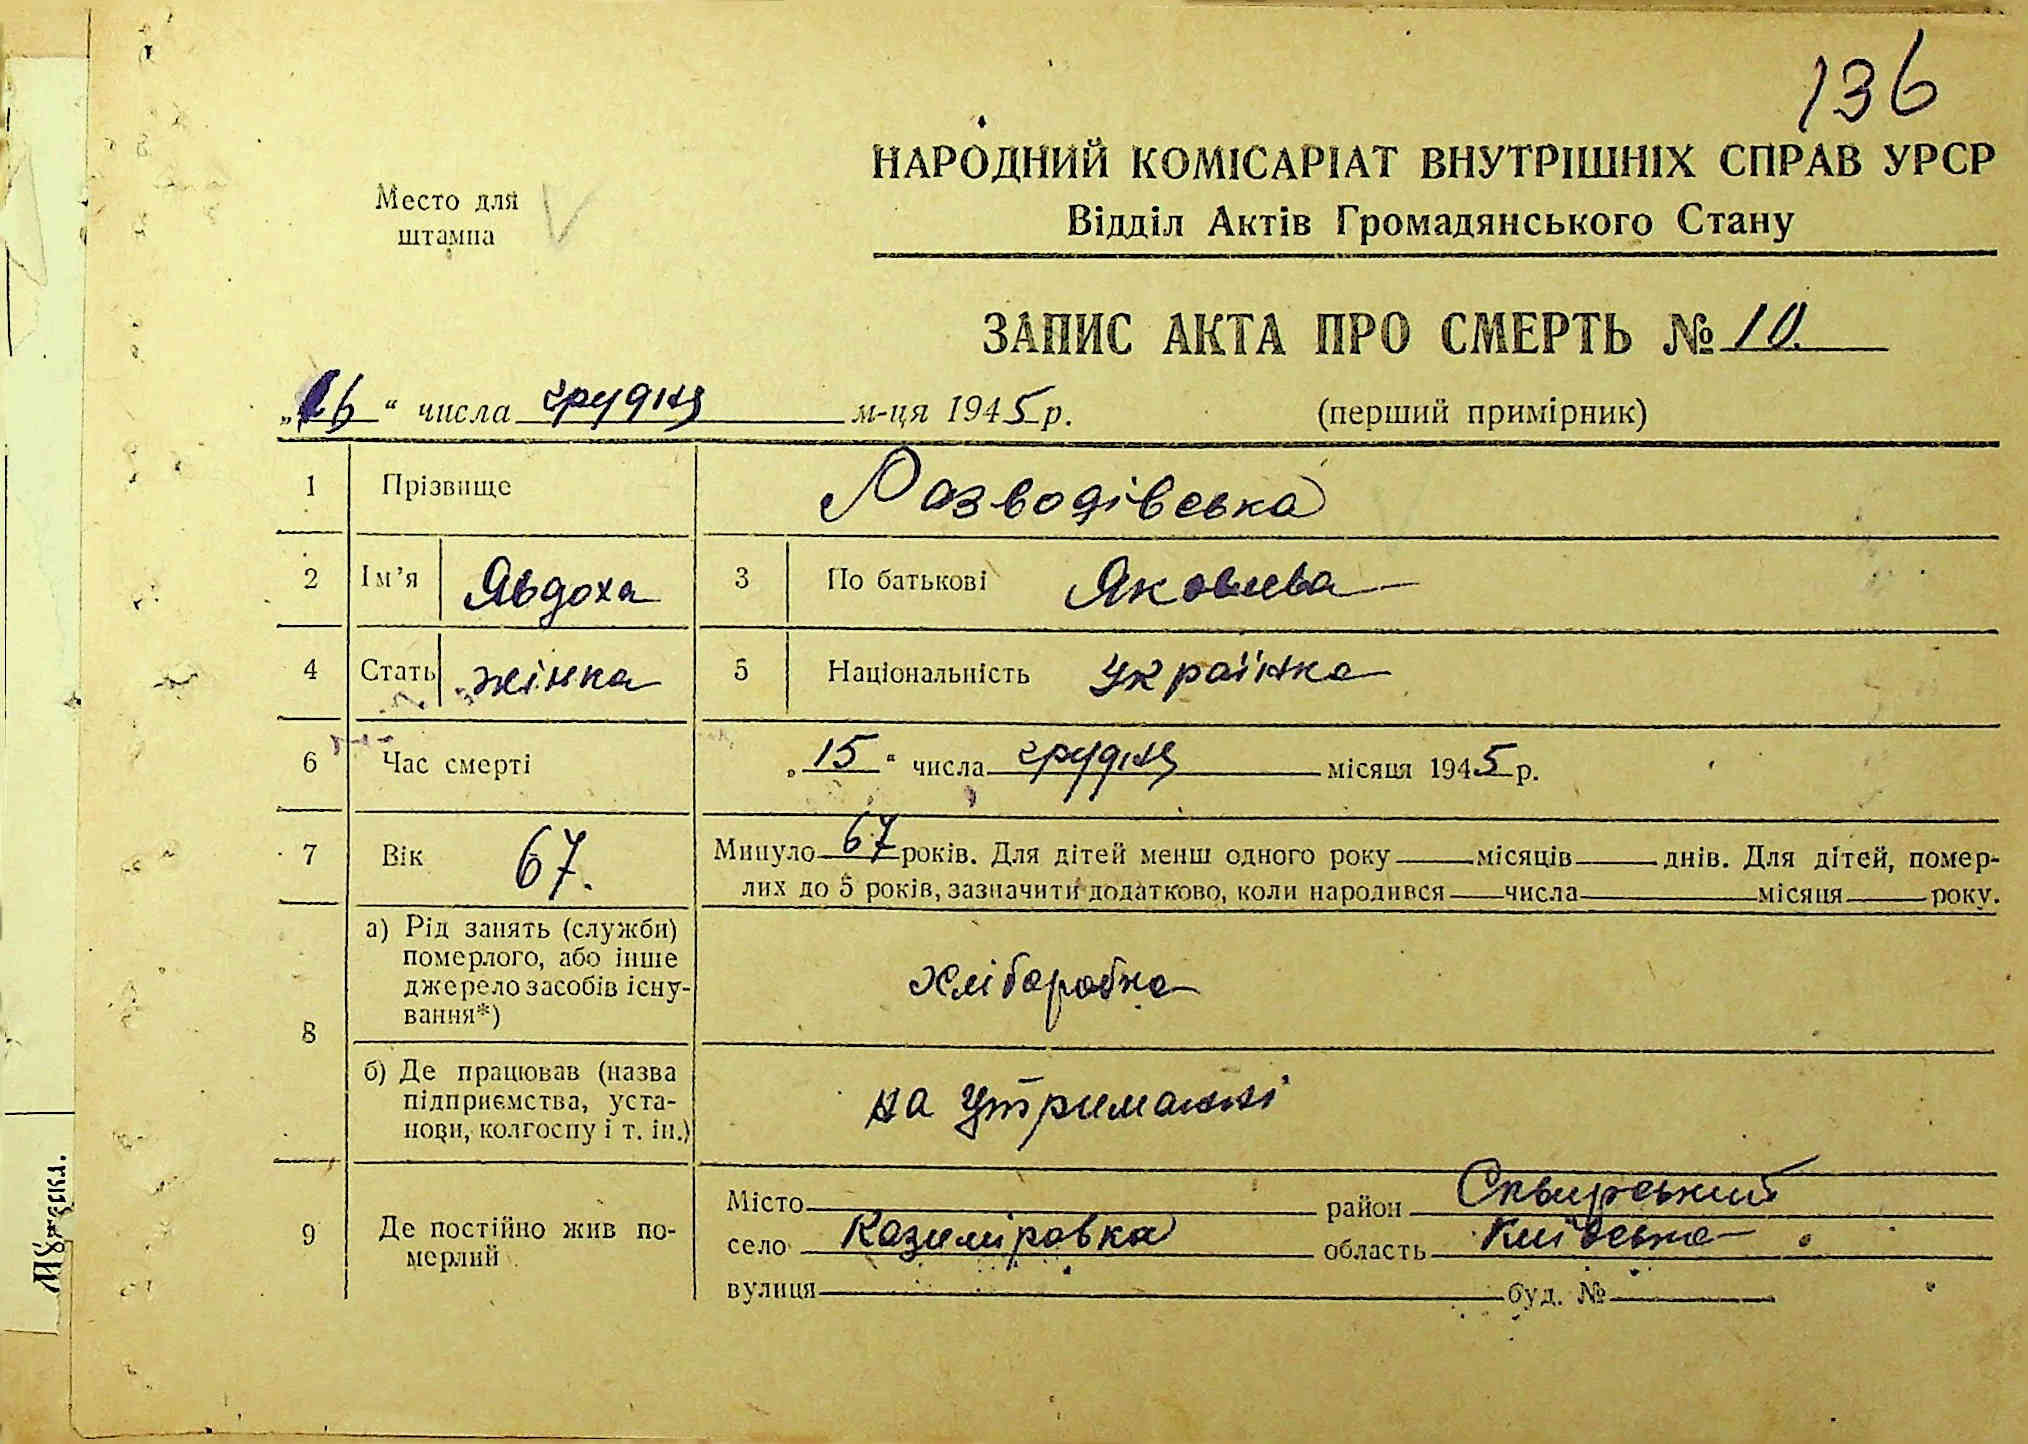 136
НАРОДНИЙ КОМІСАРІАТ ВНУТРІШНІХ СПРАВ УРСР
Место для
штампа
Відділ Актів Громадянського Стану
ЗАПИС АКТА ПРО СМЕРТЬ № 10.
„16“ числа грудня м-ця 1945 р. (перший примірник)
1 Прізвище Розводівська
2 Ім’я Явдоха 3 По батькові Яковлева
4 Стать жінка 5 Національність українка
6 Час смерті „15“ числа грудня місяця 1945 р.
7 Вік 67. Минуло 67 років. Для дітей менш одного року місяців днів. Для дітей, помер-
лих до 5 років, зазначити додатково, коли народився числа місяця року.
8 а) Рід занять (служби)
померлого, або інше
джерело засобів існу-
вання*)
хліборобка
б) Де працював (назва
підприємства, уста-
нови, колгоспу і т. ін.)
на утриманні
9 Де постійно жив по-
мерлий
Місто район Сквирський
село Казиміровка область Київська
вулиця буд. №